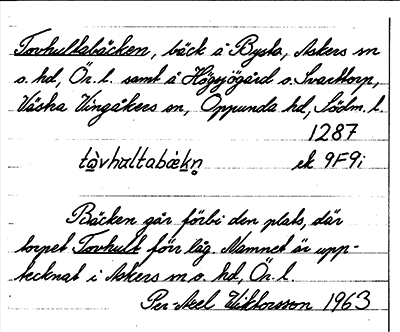 Tovhultabäcken, bäck å Bysta, Askers sn
o. hd, Ör. l. samt å Högsjögård o. Svarttorp,
Västra Vingåkers sn, Oppunda hd, Södm. l.
1287
tàvhultabäkn̥ ek 9F9i
Bäcken går förbi den plats, där
torpet Tovhult förr låg. Namnet är upp-
tecknat i Askers sn o. hd, Ör. l.
Per-Axel Wiktorsson 1963